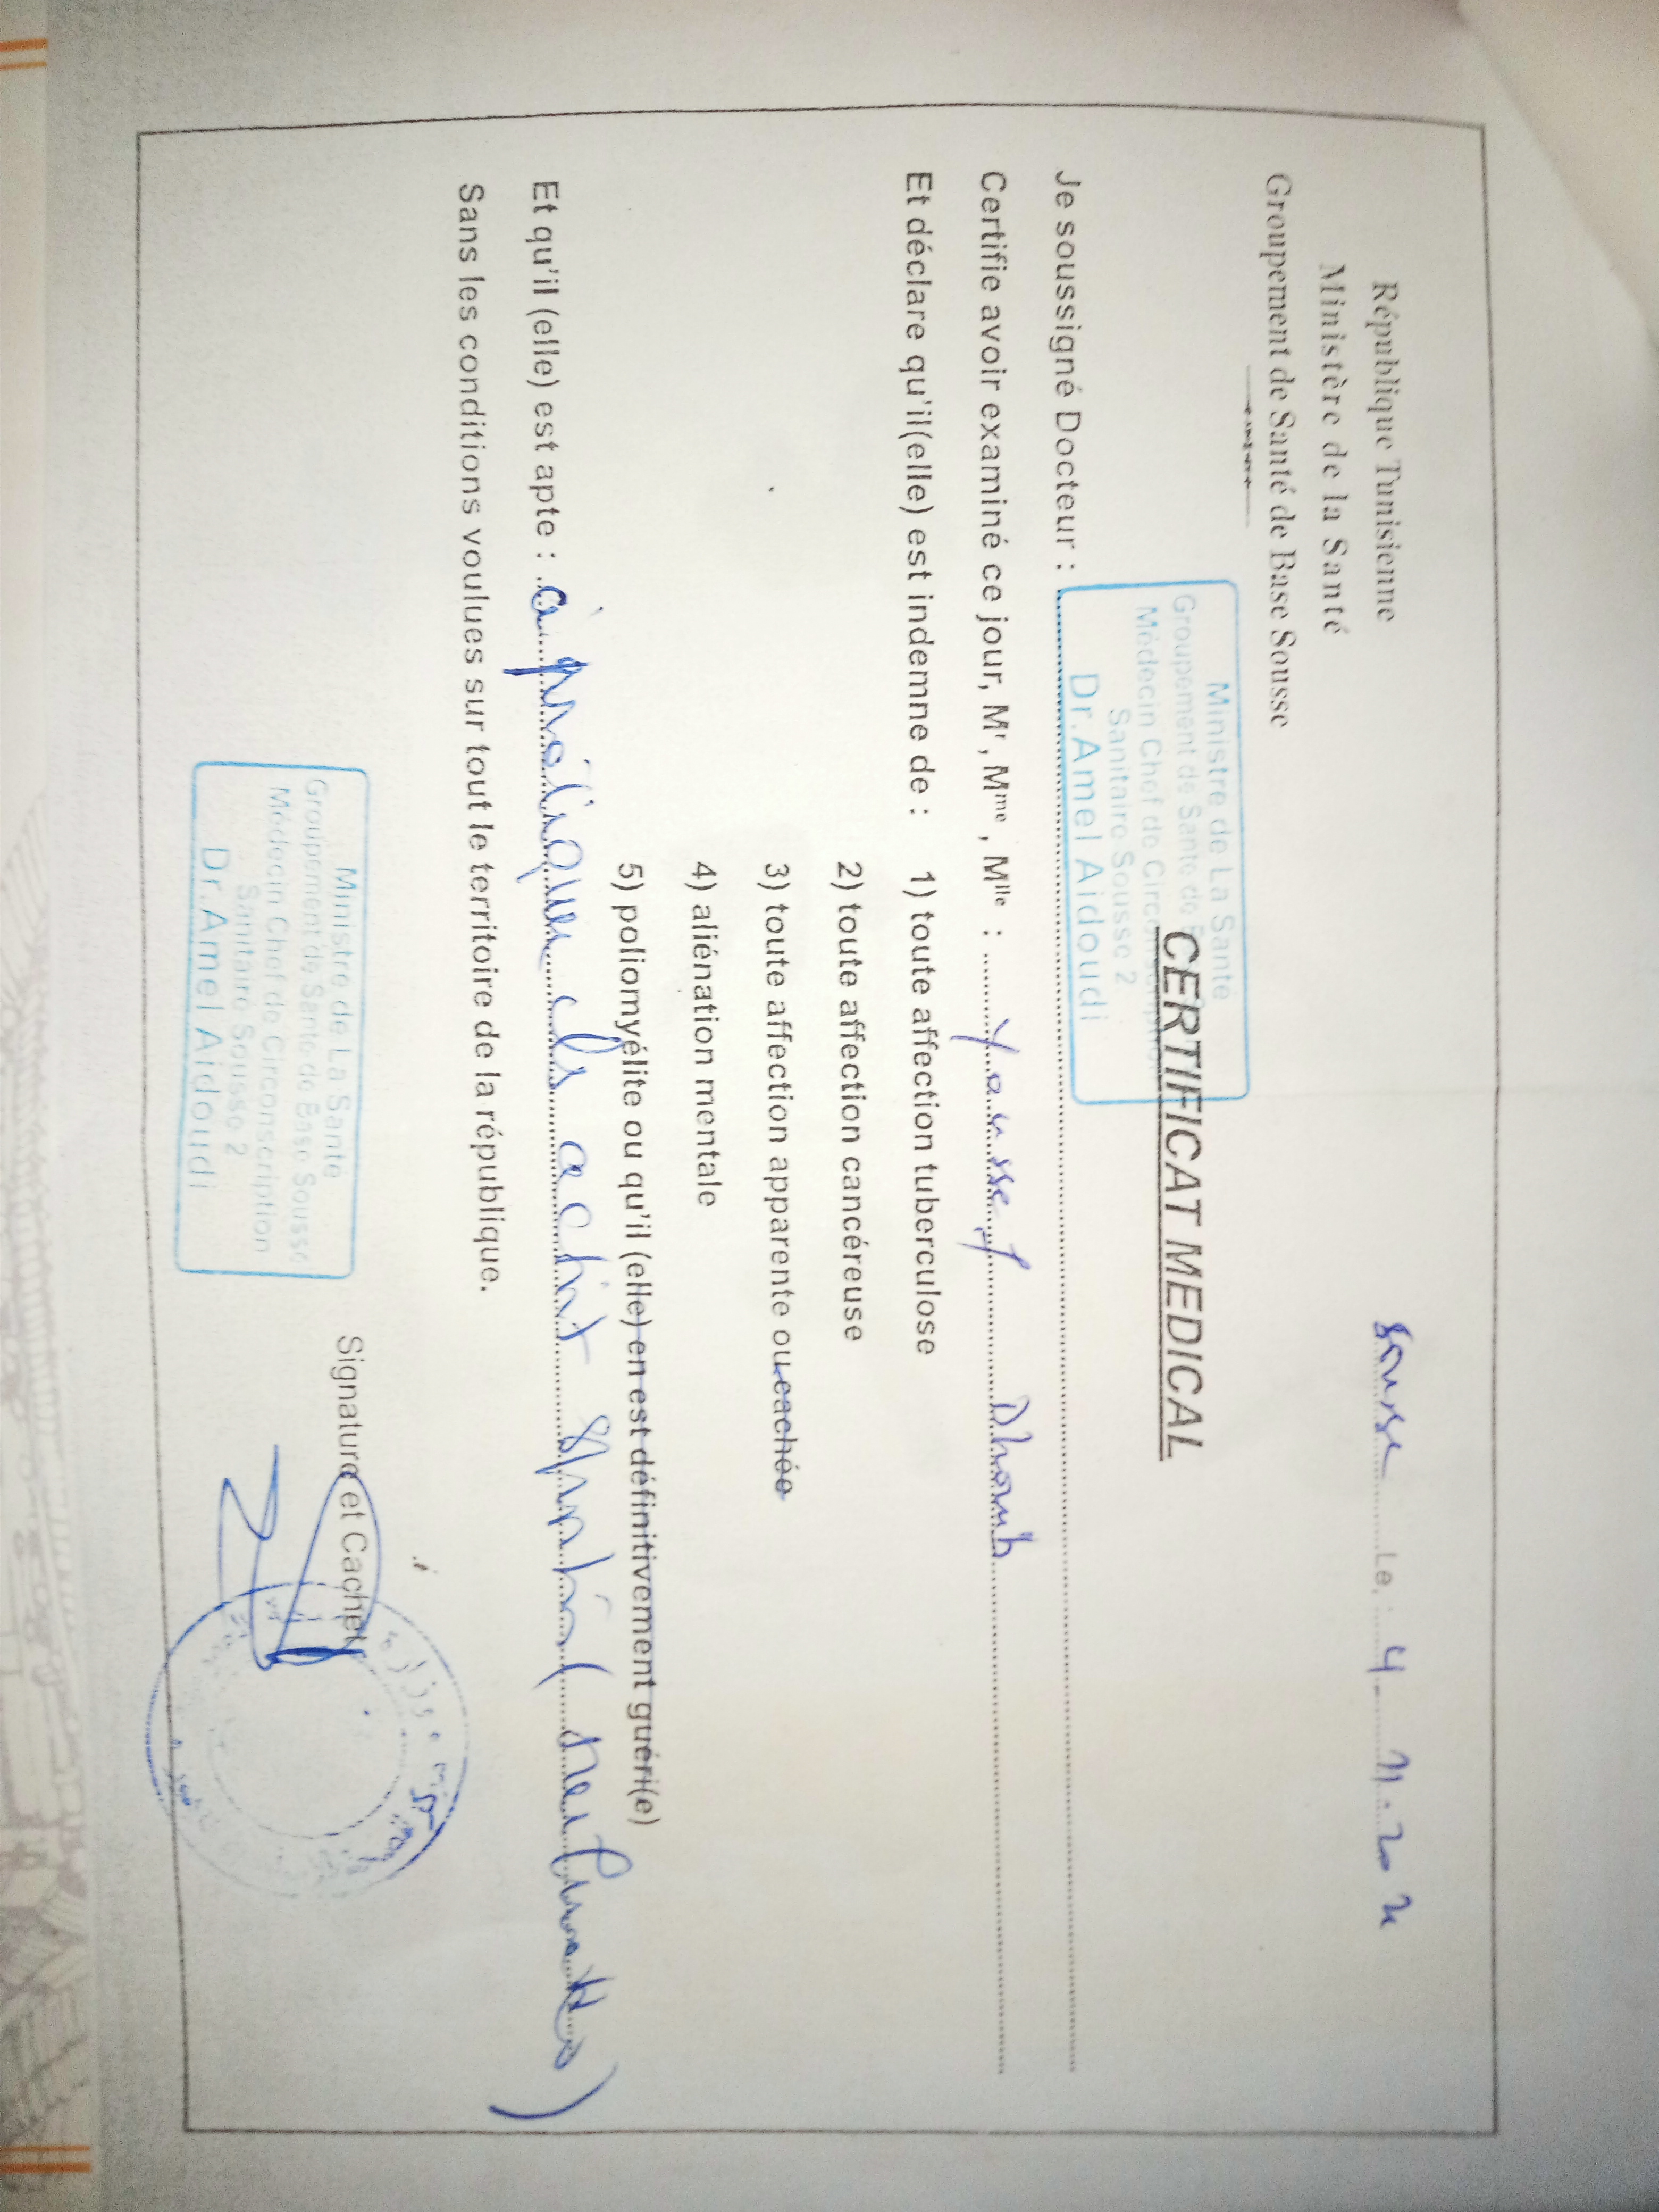 République Tunisienne
Ministère de la Santé
Groupement de Santé de Base Sousse
Sousse Le : 4 11. 202
CERTIFICAT MEDICAL
Ministre de La Santé
Groupement de Santé de
Médecin Chef de Circonscription
Sanitaire Sousse 2
Dr. Amel Aidoudi
Je soussigné Docteur :
Certifie avoir examiné ce jour, Mr, Mme, Mlle : Youssef Dhouib
Et déclare qu'il(elle) est indemne de : 1) toute affection tuberculose
2) toute affection cancéreuse
3) toute affection apparente ou cachée
4) aliénation mentale
5) poliomyélite ou qu'il (elle) en est définitivement guéri(e)
Et qu'il (elle) est apte : à pratiquer
Sans les conditions voulues sur tout le territoire de la république.
Signature et Cachet
Ministre de La Santé
Groupement de Santé de Base Sousse
Médecin Chef de Circonscription
Sanitaire Sousse 2
Dr. Amel Aidoudi